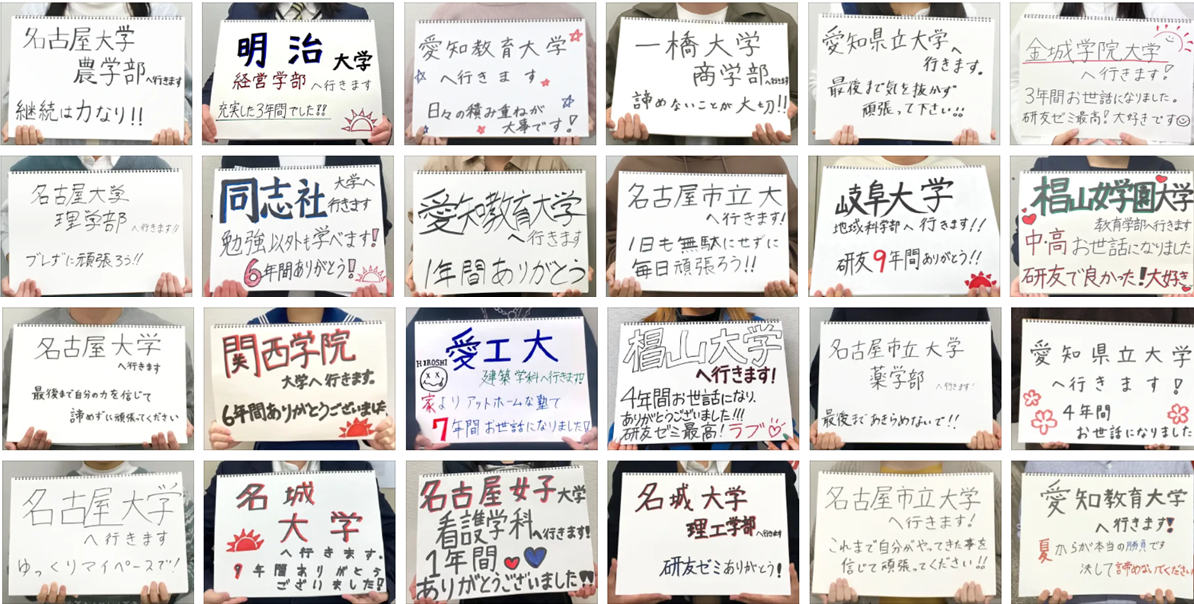 名古屋大学
農学部へ行きます
継続は力なり!!
明治大学
経営学部へ行きます
充実した3年間でした!!
愛知教育大学
へ行きます
日々の積み重ねが
大事です!
一橋大学
商学部へ行きます
諦めないことが大切!!
愛知県立大学へ
行きます。
最後まで気を抜かず
頑張って下さい!!
金城学院大学
へ行きます!
3年間お世話になりました。
研友ゼミ最高!大好きです
名古屋大学
理学部へ行きます!!
ブレずに頑張ろう!!
同志社大学へ
行きます
勉強以外も学べます!
6年間ありがとう!
愛知教育大学
へ行きます
1年間ありがとう
名古屋市立大
へ行きます!
1日も無駄にせずに
毎日頑張ろう!!
岐阜大学
地域科学部へ行きます!!
研友9年間ありがとう!!
椙山女学園大学
教育学部へ行きます
中・高お世話になりました
研友で良かった!大好き
名古屋大学
へ行きます
最後まで自分の力を信じて
諦めずに頑張ってください
関西学院
大学へ行きます。
6年間ありがとうございました
愛工大
HIROSHI
建築学科へ行きます!!
家よりアットホームな塾で
7年間お世話になりました!!
椙山大学
へ行きます!
4年間お世話になり、
ありがとうございました!!!
研友ゼミ最高!ラブ
名古屋市立大学
薬学部へ行きます!
最後まであきらめないで!!
愛知県立大学
へ行きます!
4年間
お世話になりました
名古屋大学
へ行きます
ゆっくりマイペースで!
名城
大学
へ行きます。
9年間ありがとう
ございました!
名古屋女子大学
看護学科へ行きます!
1年間
ありがとうございました!!
名城大学
理工学部へ行きます
研友ゼミありがとう!
名古屋市立大学
へ行きます!
これまで自分がやってきた事を
信じて頑張ってください!!
愛知教育大学
へ行きます!
夏からが本当の勝負です
決して諦めないでください